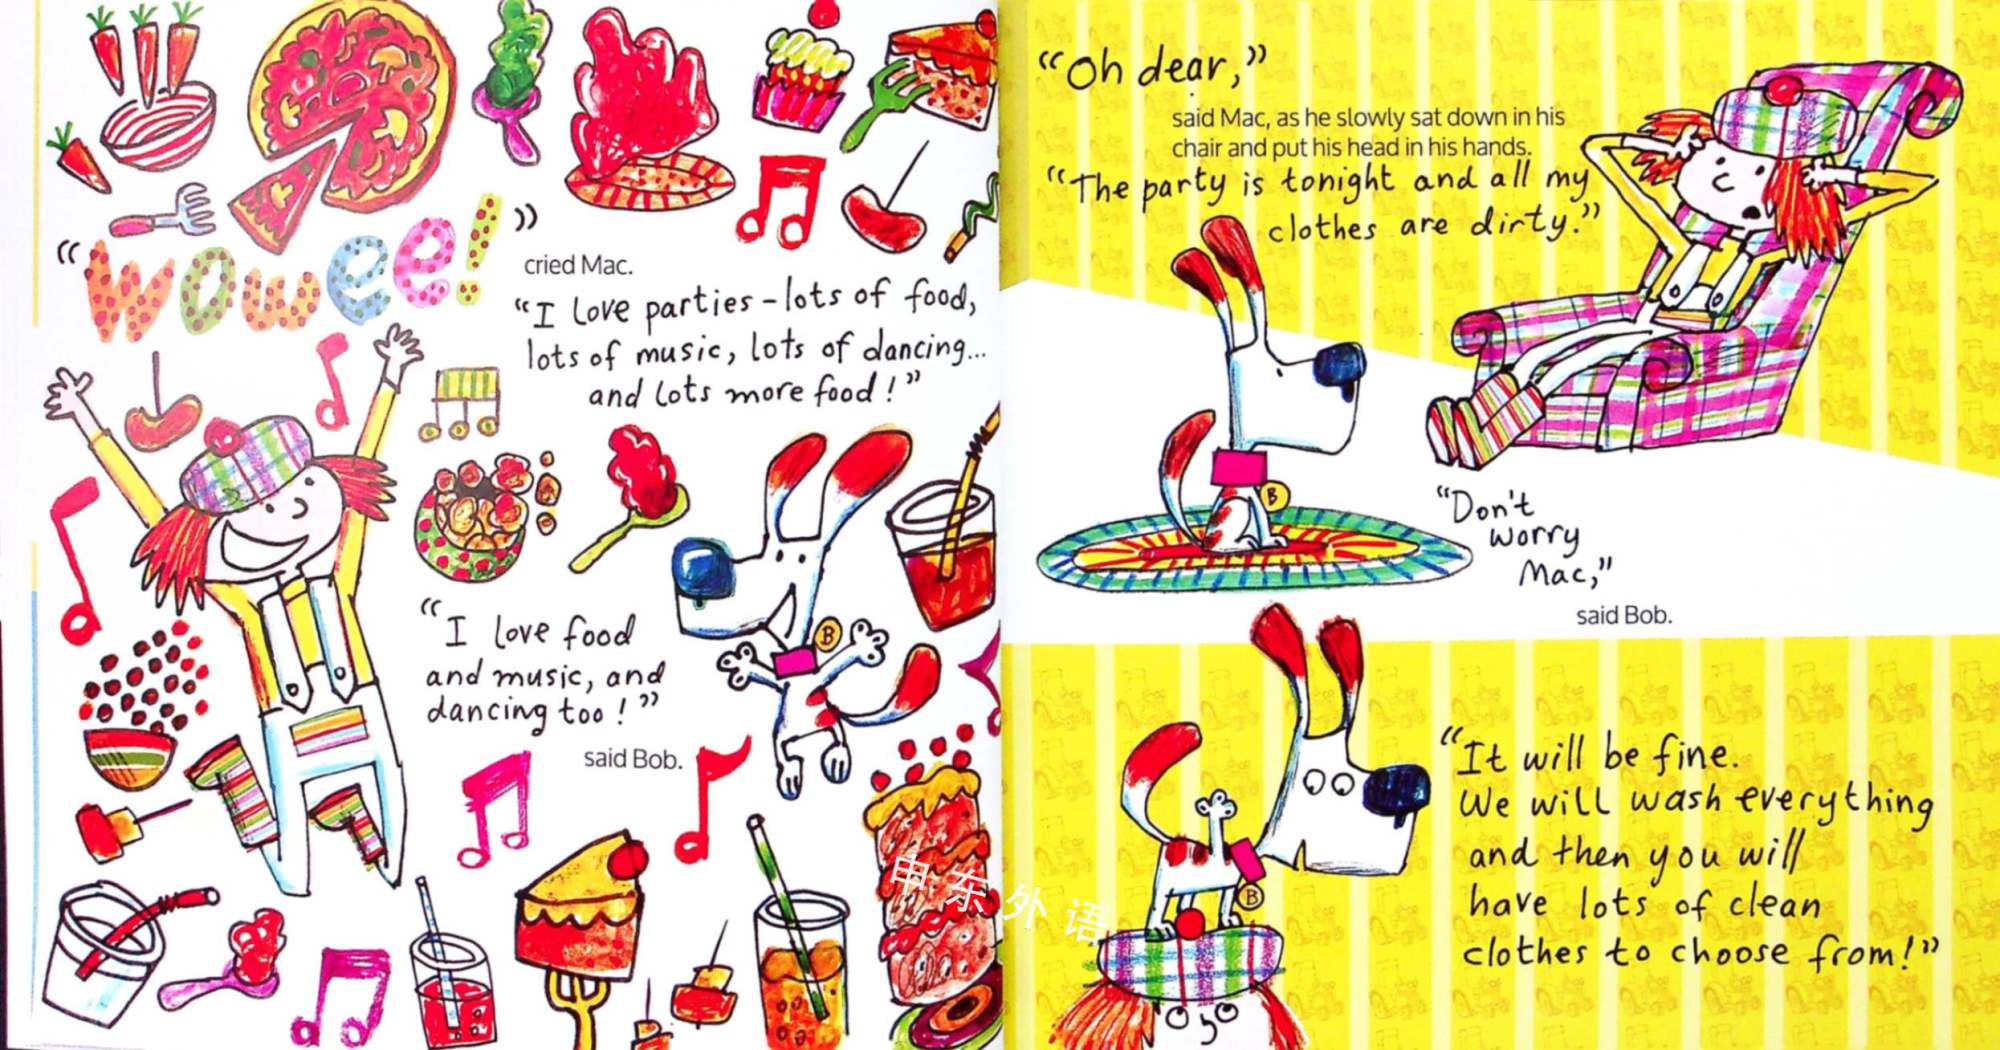 "wowee!"
cried Mac.
"I love parties - lots of food,
lots of music, lots of dancing...
and lots more food!"
"I love food
and music, and
dancing too!"
said Bob.
B
"Oh dear,"
said Mac, as he slowly sat down in his
chair and put his head in his hands.
"The party is tonight and all my
clothes are dirty."
B
"Don't
worry
Mac,"
said Bob.
"It will be fine.
We will wash everything
and then you will
have lots of clean
clothes to choose from!"
B
申东外语